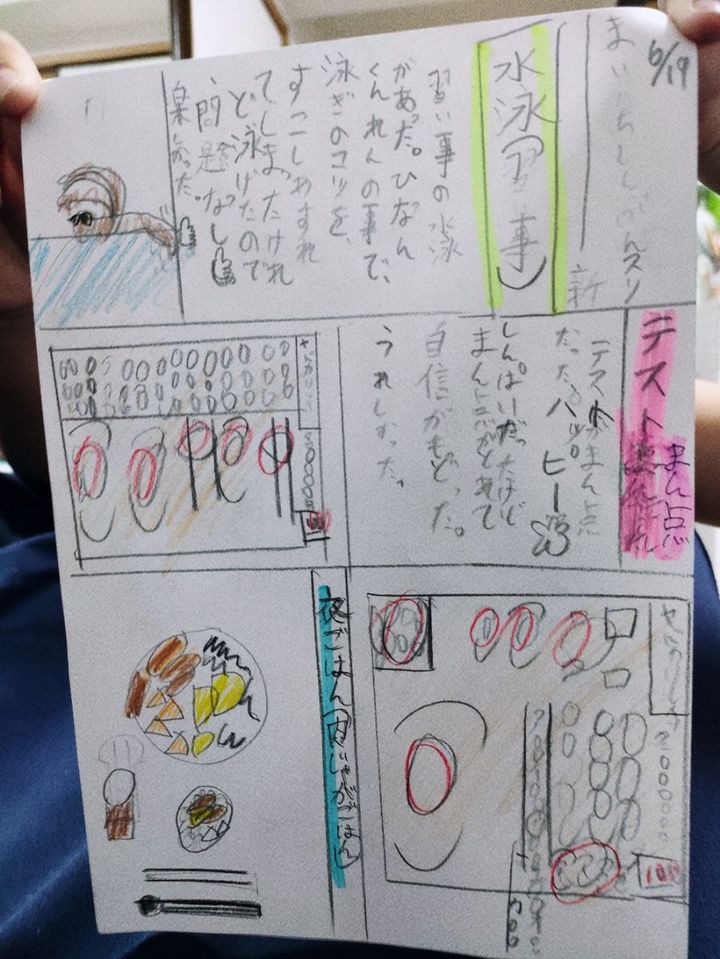 6/19
まいにちしんぶんスリ
新
水泳(習い事)
習い事の水泳
があった。ひなん
くんれんの事で、
泳ぎのコツを、
すこしわすれ
てしまったけれ
ど、泳げたので
問題なし
楽しかった。
テスト
まん点
テストがまん点
だった。ハッピー
しんぱいだったけど
まん点がとれて
自信がもどった。
うれしかった。
100
夜ごはん